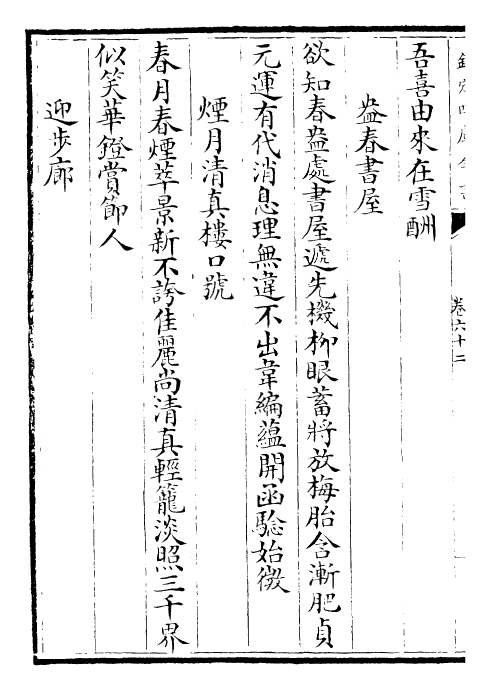 吾喜由來在雪酬
盎春書屋
欲知春盎處書屋遞先機柳眼蓄將放梅胎含漸肥貞
元運有代消息理無違不出韋編蘊開函驗始微
煙月清真樓口號
春月春煙萃景新不誇佳麗尚清真輕籠淡照三千界
似笑華鐙賞節人
迎步廊
卷六十二